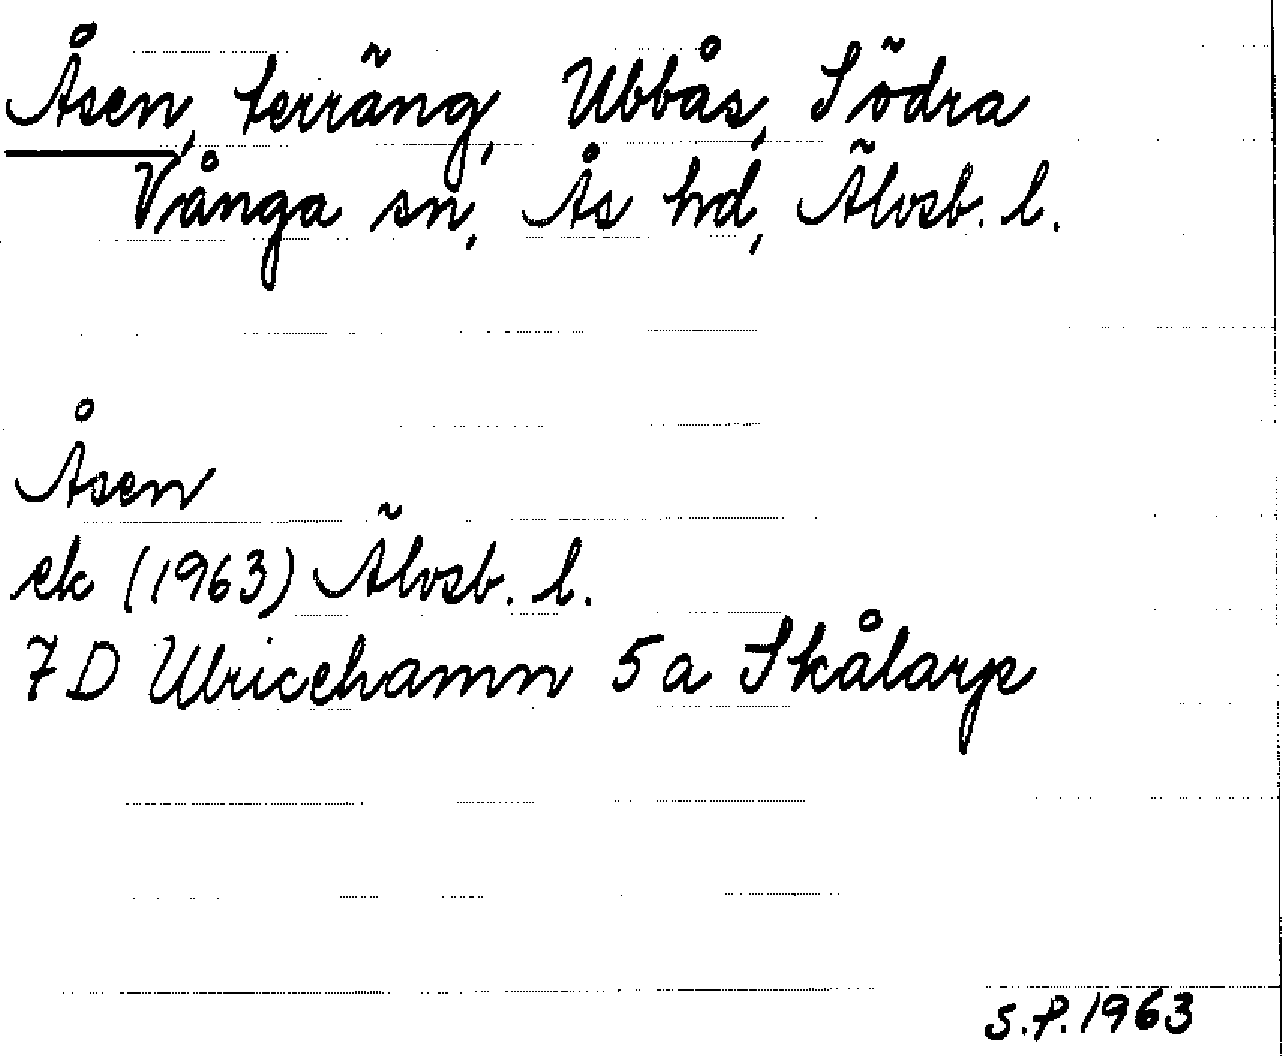 Åsen, terräng, Ubbås, Södra
Vånga sn, Ås hd, Älvsb. l.
Åsen
ek (1963) Älvsb. l.
7 D Ulricehamn 5 a Skålarp
S.P. 1963